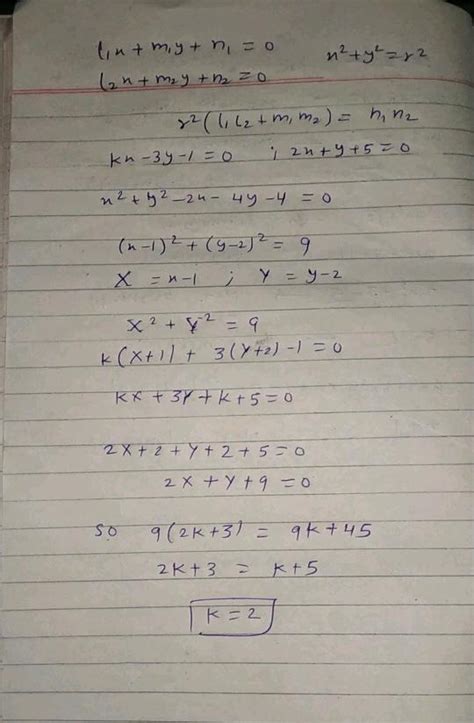 l₁x + m₁y + n₁ = 0 x² + y² = r²
l₂x + m₂y + n₂ = 0
r² (l₁l₂ + m₁m₂) = n₁n₂
kx - 3y - 1 = 0 ; 2x + y + 5 = 0
x² + y² - 2x - 4y - 4 = 0
(x-1)² + (y-2)² = 9
X = x-1 ; Y = y-2
X² + Y² = 9
k(X+1) + 3(Y+2) - 1 = 0
kX + 3Y + k + 5 = 0
2X + 2 + Y + 2 + 5 = 0
2X + Y + 9 = 0
so 9(2k+3) = 9k + 45
2k + 3 = k + 5
k = 2